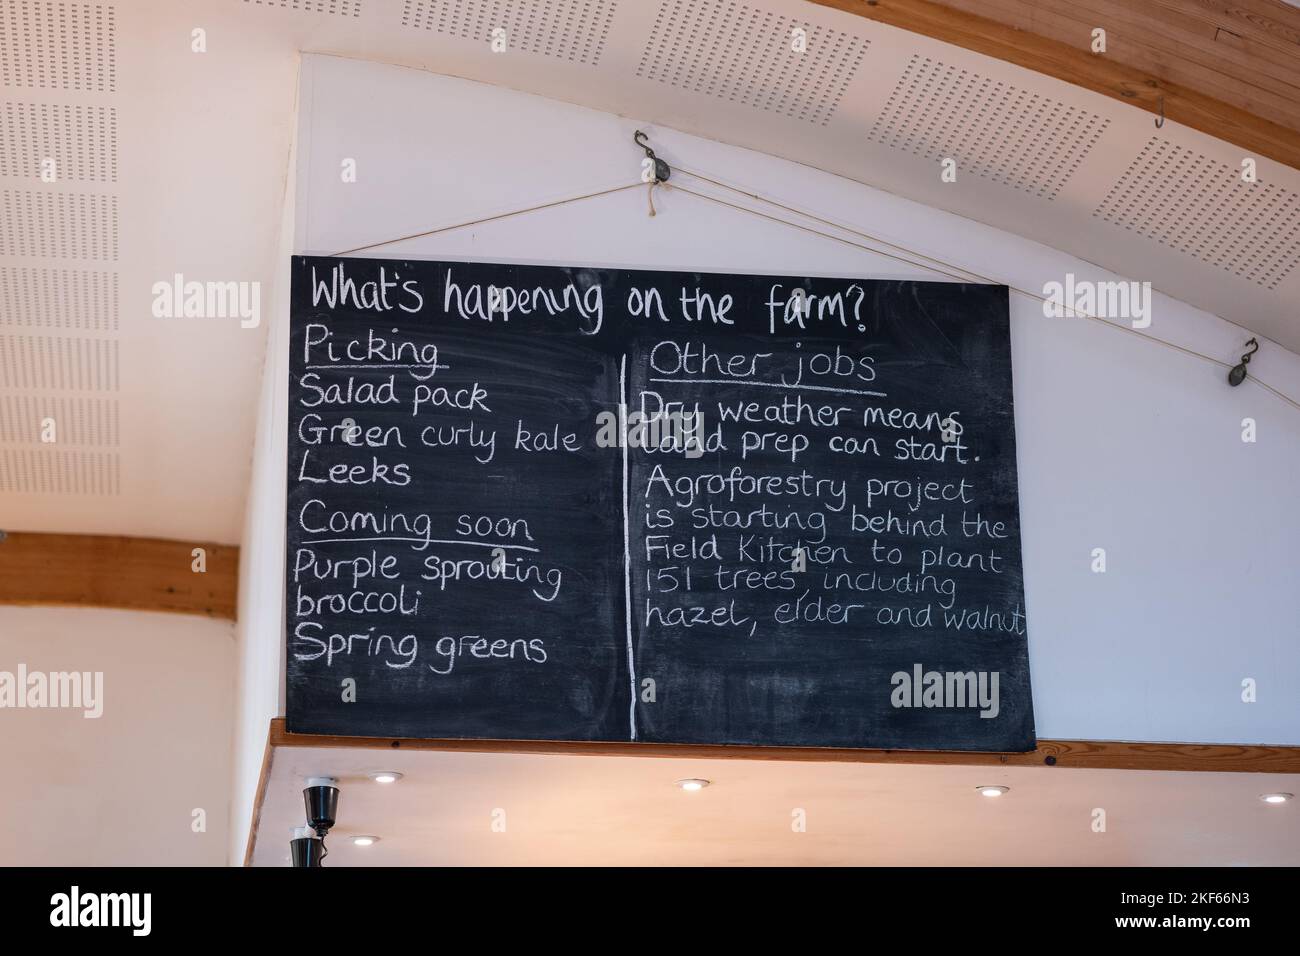 What's happening on the farm?
Picking
Salad pack
Green curly kale
Leeks
Coming soon
Purple sprouting
broccoli
Spring greens
Other jobs
Dry weather means
land prep can start.
Agroforestry project
is starting behind the
Field Kitchen to plant
151 trees, including
hazel, elder and walnut
alamy
alamy
alamy
alamy
alamy
alamy
alamy
Image ID: 2KF66N3
www.alamy.com